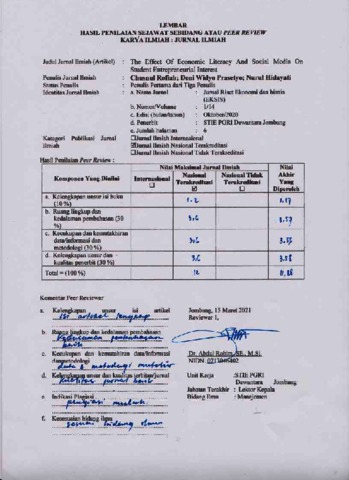 LEMBAR
HASIL PENILAIAN SEJAWAT SEBIDANG ATAU PEER REVIEW
KARYA ILMIAH : JURNAL ILMIAH
Judul Jurnal Ilmiah (Artikel) : The Effect Of Economic Literacy And Social Media On
Student Entrepreneurial Interest
Penulis Jurnal Ilmiah : Chusnul Rofiah; Deni Widyo Prasetyo; Nurul Hidayati
Status Penulis : Penulis Pertama dari Tiga Penulis
Identitas Jurnal Ilmiah : a. Nama Jurnal : Jurnal Riset Ekonomi dan bisnis
b. Nomor/Volume : 1/14
c. Edisi (bulan/tahun) : Oktober/2020
d. Penerbit : STIE PGRI Dewantara Jombang
e. Jumlah halaman : 6
Kategori Publikasi Jurnal Ilmiah
Jurnal Ilmiah Internasional
Jurnal Ilmiah Nasional Terakreditasi
Jurnal Ilmiah Nasional Tidak Terakreditasi
Hasil Penilaian Peer Review :
Komponen Yang Dinilai
Nilai Maksimal Jurnal Ilmiah
Internasional
Nasional Terakreditasi
Nasional Tidak Terakreditasi
Nilai Akhir Yang Diperoleh
a. Kelengkapan unsur isi buku (10 %)
b. Ruang lingkup dan kedalaman pembahasan (30 %)
c. Kecukupan dan kemutakhiran data/informasi dan metodologi (30 %)
d. Kelengkapan unsur dan kualitas penerbit (30 %)
Total = (100 %)
Komentar Peer Reviewer
a. Kelengkapan unsur isi artikel
isi artikel lengkap
b. Ruang lingkup dan kedalaman pembahasan
c. Kecukupan dan kemutakhiran data/informasi dan metodologi
d. Kelengkapan unsur dan kualitas
e. Indikasi Plagiasi
f. Kesesuaian bidang ilmu
sesuai bidang ilmu
Jombang, 15 Maret 2021
Reviewer 1,
Dr. Abdul Rohim, SE., M.Si.
Unit Kerja : STIE PGRI
Dewantara Jombang
Jabatan Terakhir : Lektor Kepala
Bidang Ilmu : Manajemen